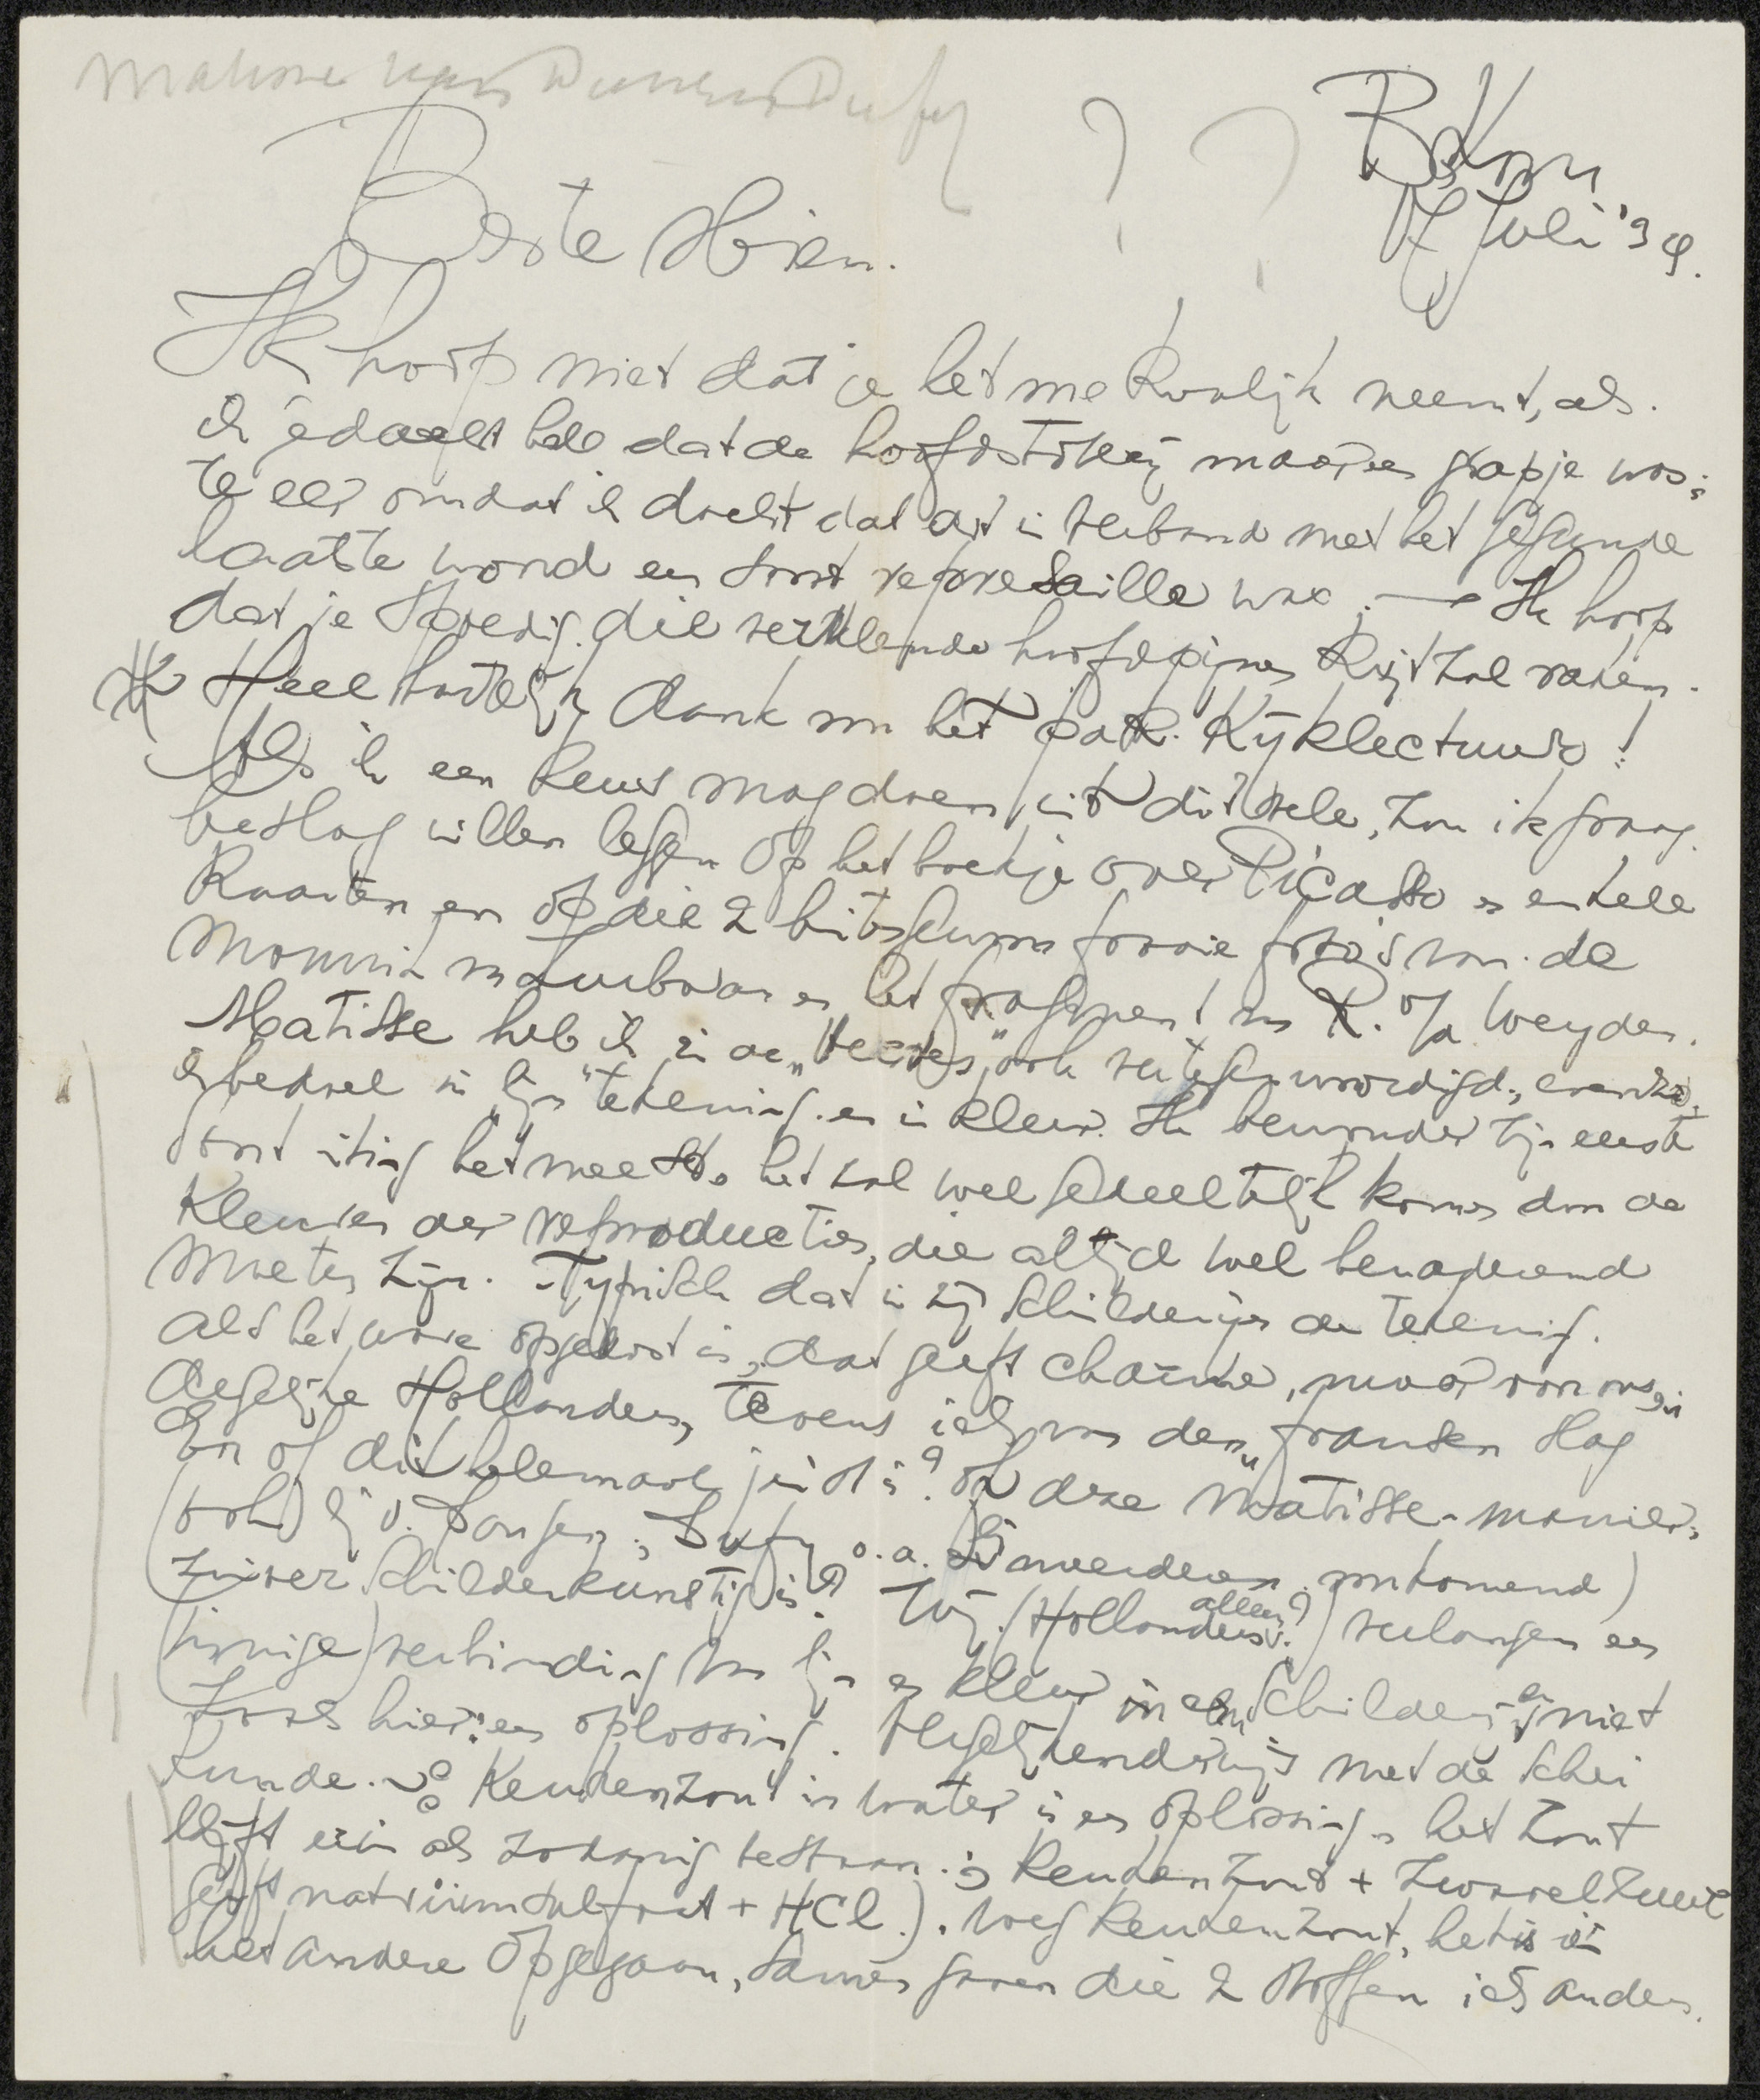 Beste Hien.
Juli '34.
Ik hoop niet dat je het me kwalijk neemt, als
ik gedacht heb dat de hoofdstukken maar een grapje was;
te eer omdat ik dacht dat dit in verband met het gegunde
laatste woord een soort represaille was. — Ik hoop
dat je spoedig die vervelende hoofdpijnen kwijt zal raken.
Heel hartelijk dank voor het pak kijklectuur!
Als ik een keus mag doen uit dit vele, zou ik graag
beslag willen leggen op het boekje over Picasso en enkele
kaarten en op die 2 buitengewoon fraaie foto's van de
het fragment van R. v/d Weyden.
Matisse heb ik in de ook vertegenwoordigd;
ik bedoel in lijn tekening en in kleur. Ik bewonder zijn eerste
soort uiting het meeste, het zal wel gedeeltelijk komen door de
kleuren der reproducties, die altijd wel benaderend
moeten zijn. Typisch dat in zijn schilderijen de tekening
als het ware opgelost is, dat geeft charme, maar voor ons
degelijke Hollanders, tevens iets van den "franschen slag"
En of dit helemaal juist is? Of deze Matisse-manier,
(ook bij v. Dongen, Dufy o.a. voorkomend)
zuiver schilderkunstig is? Wij (Hollanders alleen?) verlangen een
(innige) verbinding van lijn en kleur in een schilderij en niet
zooals hier: een oplossing. Vergelijkenderwijs met de schei
kunde. Keukenzout in water is een oplossing, het zout
blijft erin als zodanig bestaan; keukenzout + zwavelzuur
geeft natriumsulfaat + HCl.). Weg keukenzout, het is in
het andere opgegaan, samen gaven die 2 stoffen iets anders.